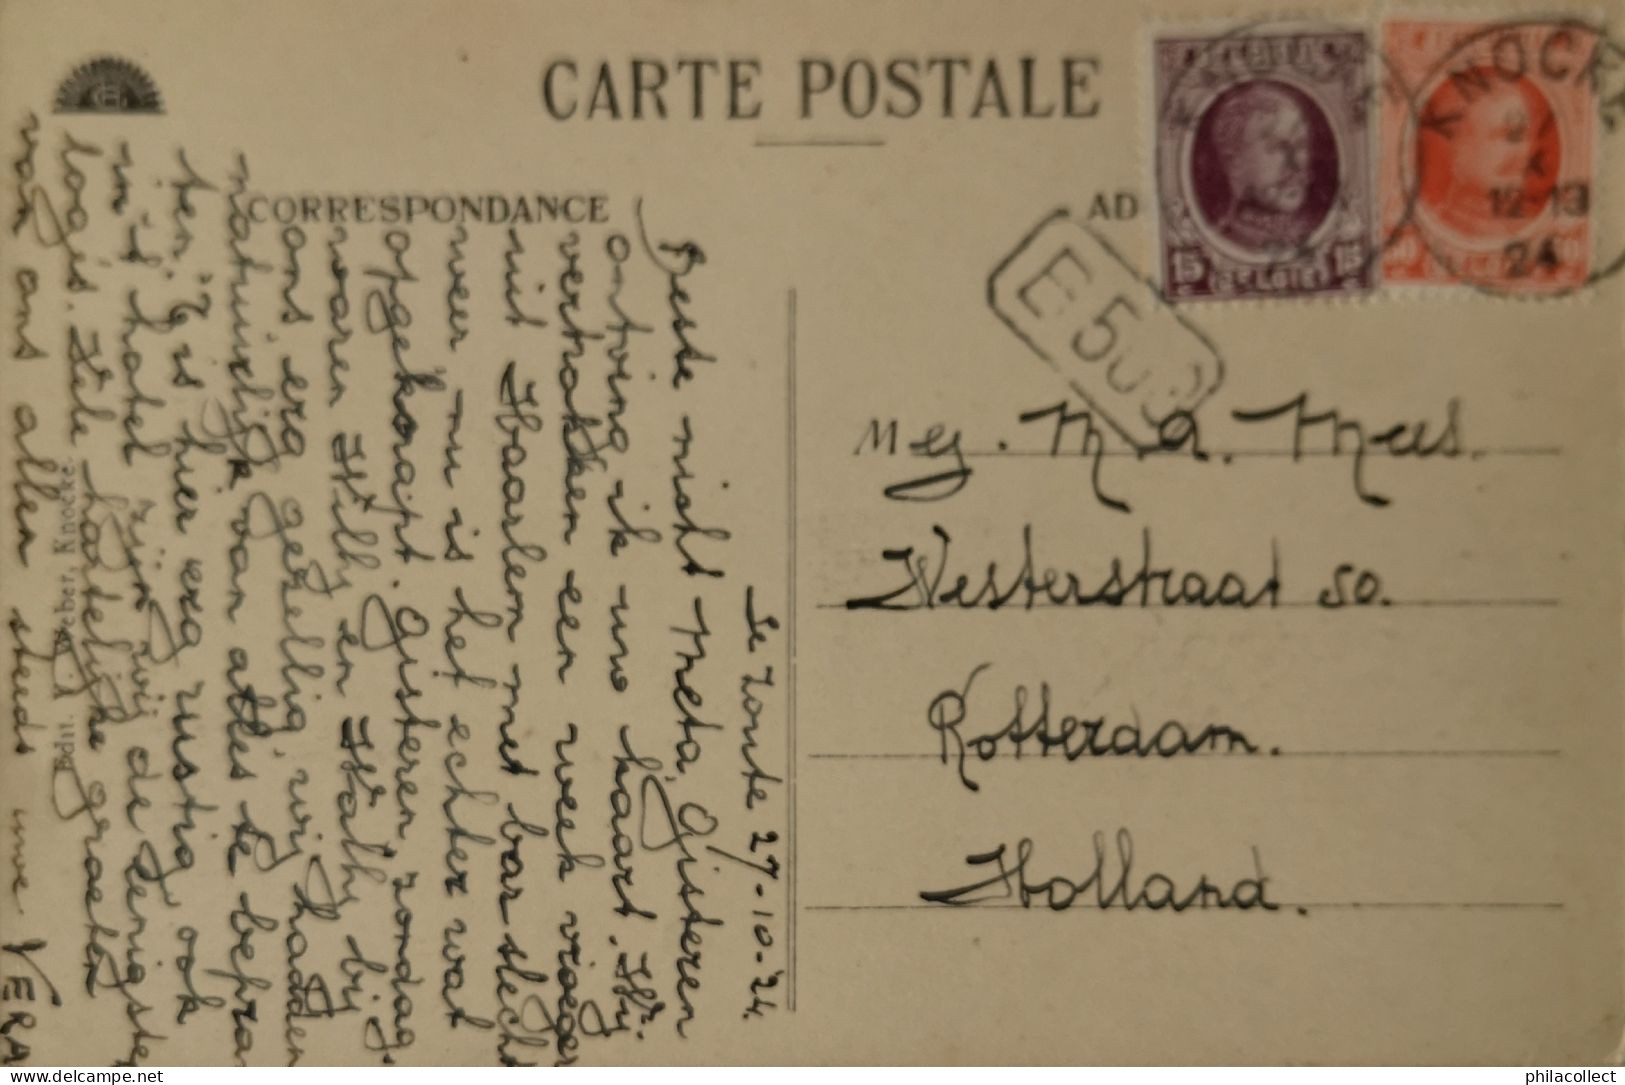 CARTE POSTALE
CORRESPONDANCE
AD
KNOCKE
27
X
12-13
24
15 BELGIË 15
E 50
Mej. M. A. Mees.
Westerstraat 50.
Rotterdam.
Holland.
Le Zoute 27-10-'24.
Beste nicht Meta, Gisteren
ontving ik uw kaart. Wij
vertrokken een week vroeger
uit Haarlem met bar slecht
weer nu is het echter wat
opgeknapt. Gisteren, zondag,
waren Willy en Wally bij
ons erg gezellig, wij hadden
natuurlijk van alles te bepra-
ten. 't is hier erg rustig, ook
in 't hotel zijn wij de eenigste
logés. Vele hartelijke groeten
van ons allen steeds uwe VERA
Edit. Weber, Knocke.
philacollect